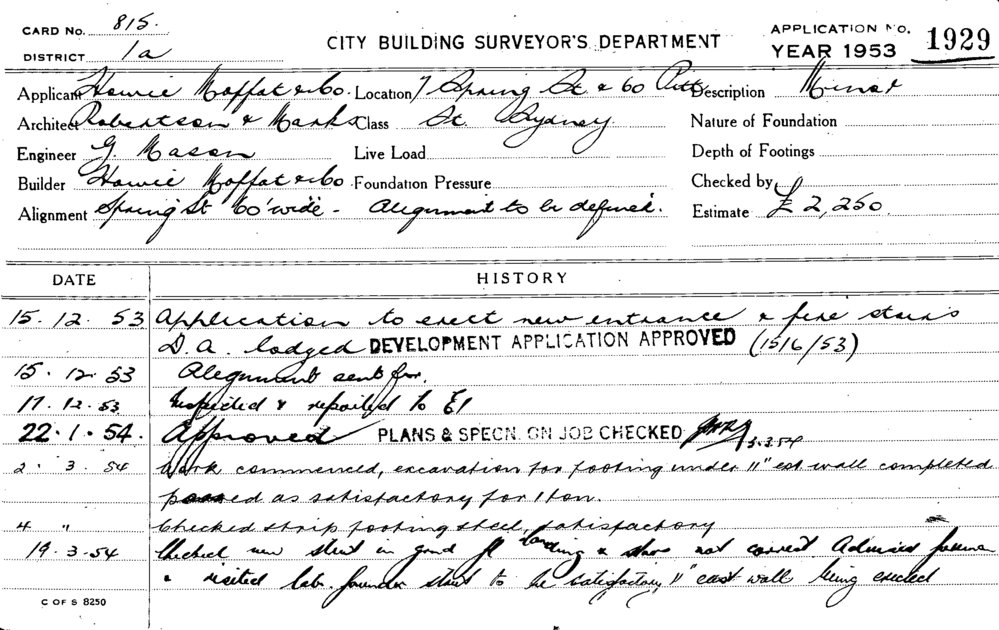 CARD No. 815.
DISTRICT 1a
CITY BUILDING SURVEYOR'S DEPARTMENT
APPLICATION No. 1929
YEAR 1953
Applicant Howie Moffat & Co. Location 7 Spring St & 60 Pitt Description Minor
Architect Robertson & Marks Class St. Sydney Nature of Foundation
Engineer G. Mason Live Load Depth of Footings
Builder Howie Moffat & Co. Foundation Pressure Checked by
Alignment Spring St 60' wide - Alignment to be defined. Estimate £2,250
DATE HISTORY
15.12.53 Application to erect new entrance & fire stairs
D.A. lodged DEVELOPMENT APPLICATION APPROVED (1516/53)
15.12.53 Alignment sent for.
17.12.53 Inspected & reported to E1
22.1.54. Approved PLANS & SPECN. ON JOB CHECKED 3.3.54
2.3.54 Work commenced, excavation for footing under 11" est wall completed
passed as satisfactory for 1 ton.
4 " Checked strip footing steel, satisfactory
19.3.54 Checked new steel in grnd fl landing & stairs not correct. Advised
& visited steel to be satisfactory, 11" east wall being erected
C OF S 8250